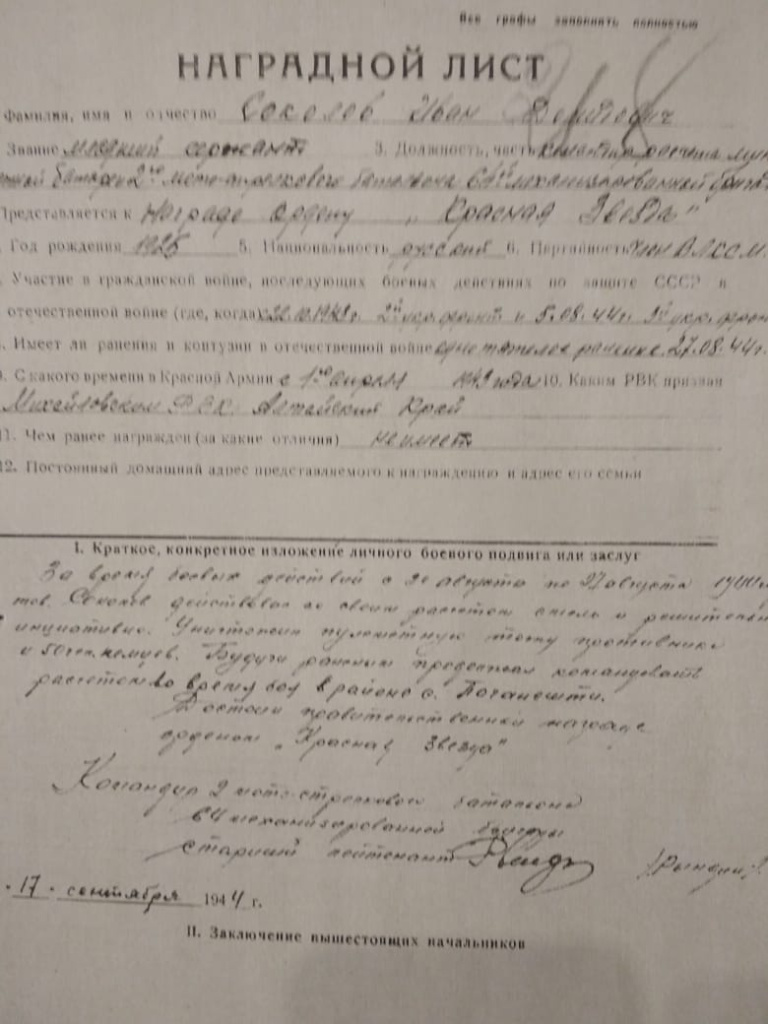 Все графы заполнять полностью
НАГРАДНОЙ ЛИСТ
Фамилия, имя и отчество Соколов Иван
Звание младший сержант 3. Должность, часть командир расчета
батареи 2го мото-стрелкового батальона 64й механизированной
Представляется к Награде ордену „Красная Звезда"
Год рождения 1925 5. Национальность русский 6. Партийность член ВЛКСМ.
Участие в гражданской войне, последующих боевых действиях по защите СССР и
отечественной войне (где, когда) 2й укр. фронт и 5.08.44г. 3й укр. фрон
Имеет ли ранения и контузии в отечественной войне одно тяжелое ранение 27.08.44г.
С какого времени в Красной Армии с 1го апреля года 10. Каким РВК призван
Михайловском РВК Алтайский Край
11. Чем ранее награжден (за какие отличия) не имеет
12. Постоянный домашний адрес представляемого к награждению и адрес его семьи
I. Краткое, конкретное изложение личного боевого подвига или заслуг
За время боевых действий с 20 августа по 27 августа 1944г
тов. Соколов действовал со своим расчетом смело и решительно
инициативно. Уничтожил пулеметную точку противника
и 50 чел. немцев. Будучи раненым продолжал командовать
расчетом во время боя в районе с. Поганешти.
Достоин правительственной награде
орденом „Красная Звезда"
Командир 2 мото-стрелкового батальона
64 механизированной бригады
старший лейтенант /Рындин/
17 сентября 1944 г.
II. Заключение вышестоящих начальников